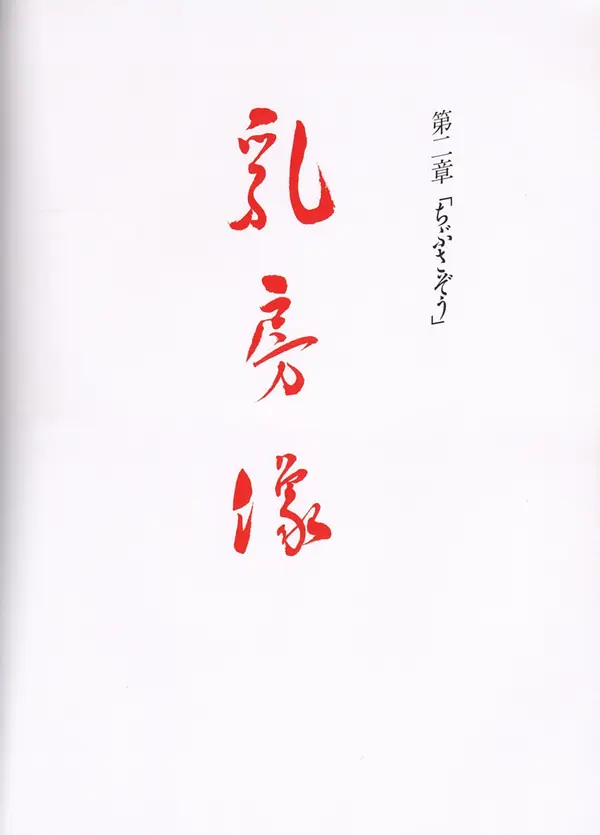 第二章「ちぶさぞう」
乳房像